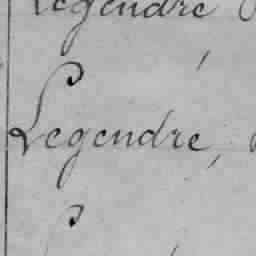 Legendre
Legendre,